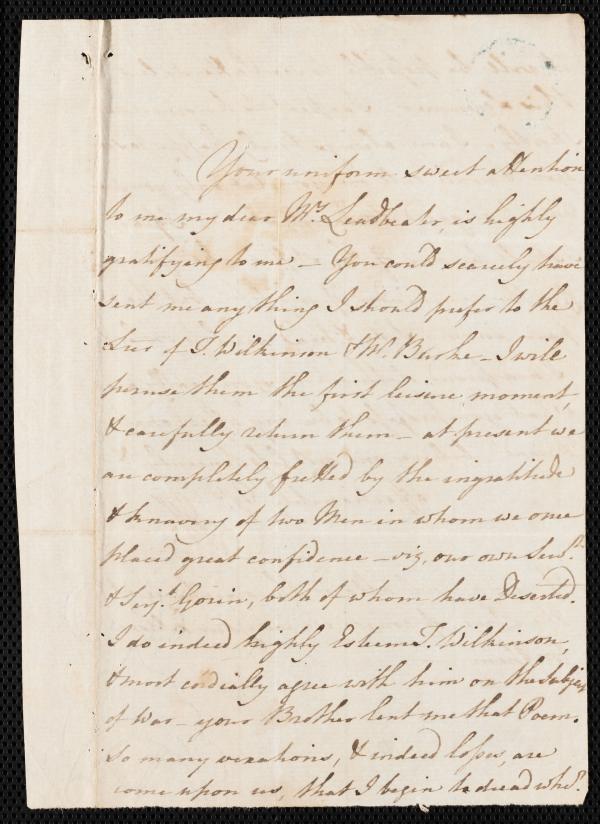 Your uniform sweet attention
to me my dear Mrs. Leadbeater, is highly
gratifying to me — You could scarcely have
sent me any thing I should prefer to the
Lres of T. Wilkinson & Mr. Burke — I will
peruse them the first leisure moment,
& carefully return them — at present we
are completely fretted by the ingratitude
& knavery of two Men in whom we once
placed great confidence — viz, our own Servt.
& Serjt. Gorin, both of whom have Deserted.
I do indeed highly Esteem T. Wilkinson,
& most cordially agree with him on the Subject
of War — your Brother lent me that Poem.
So many vexations, & indeed losses, are
come upon us, that I begin to dread